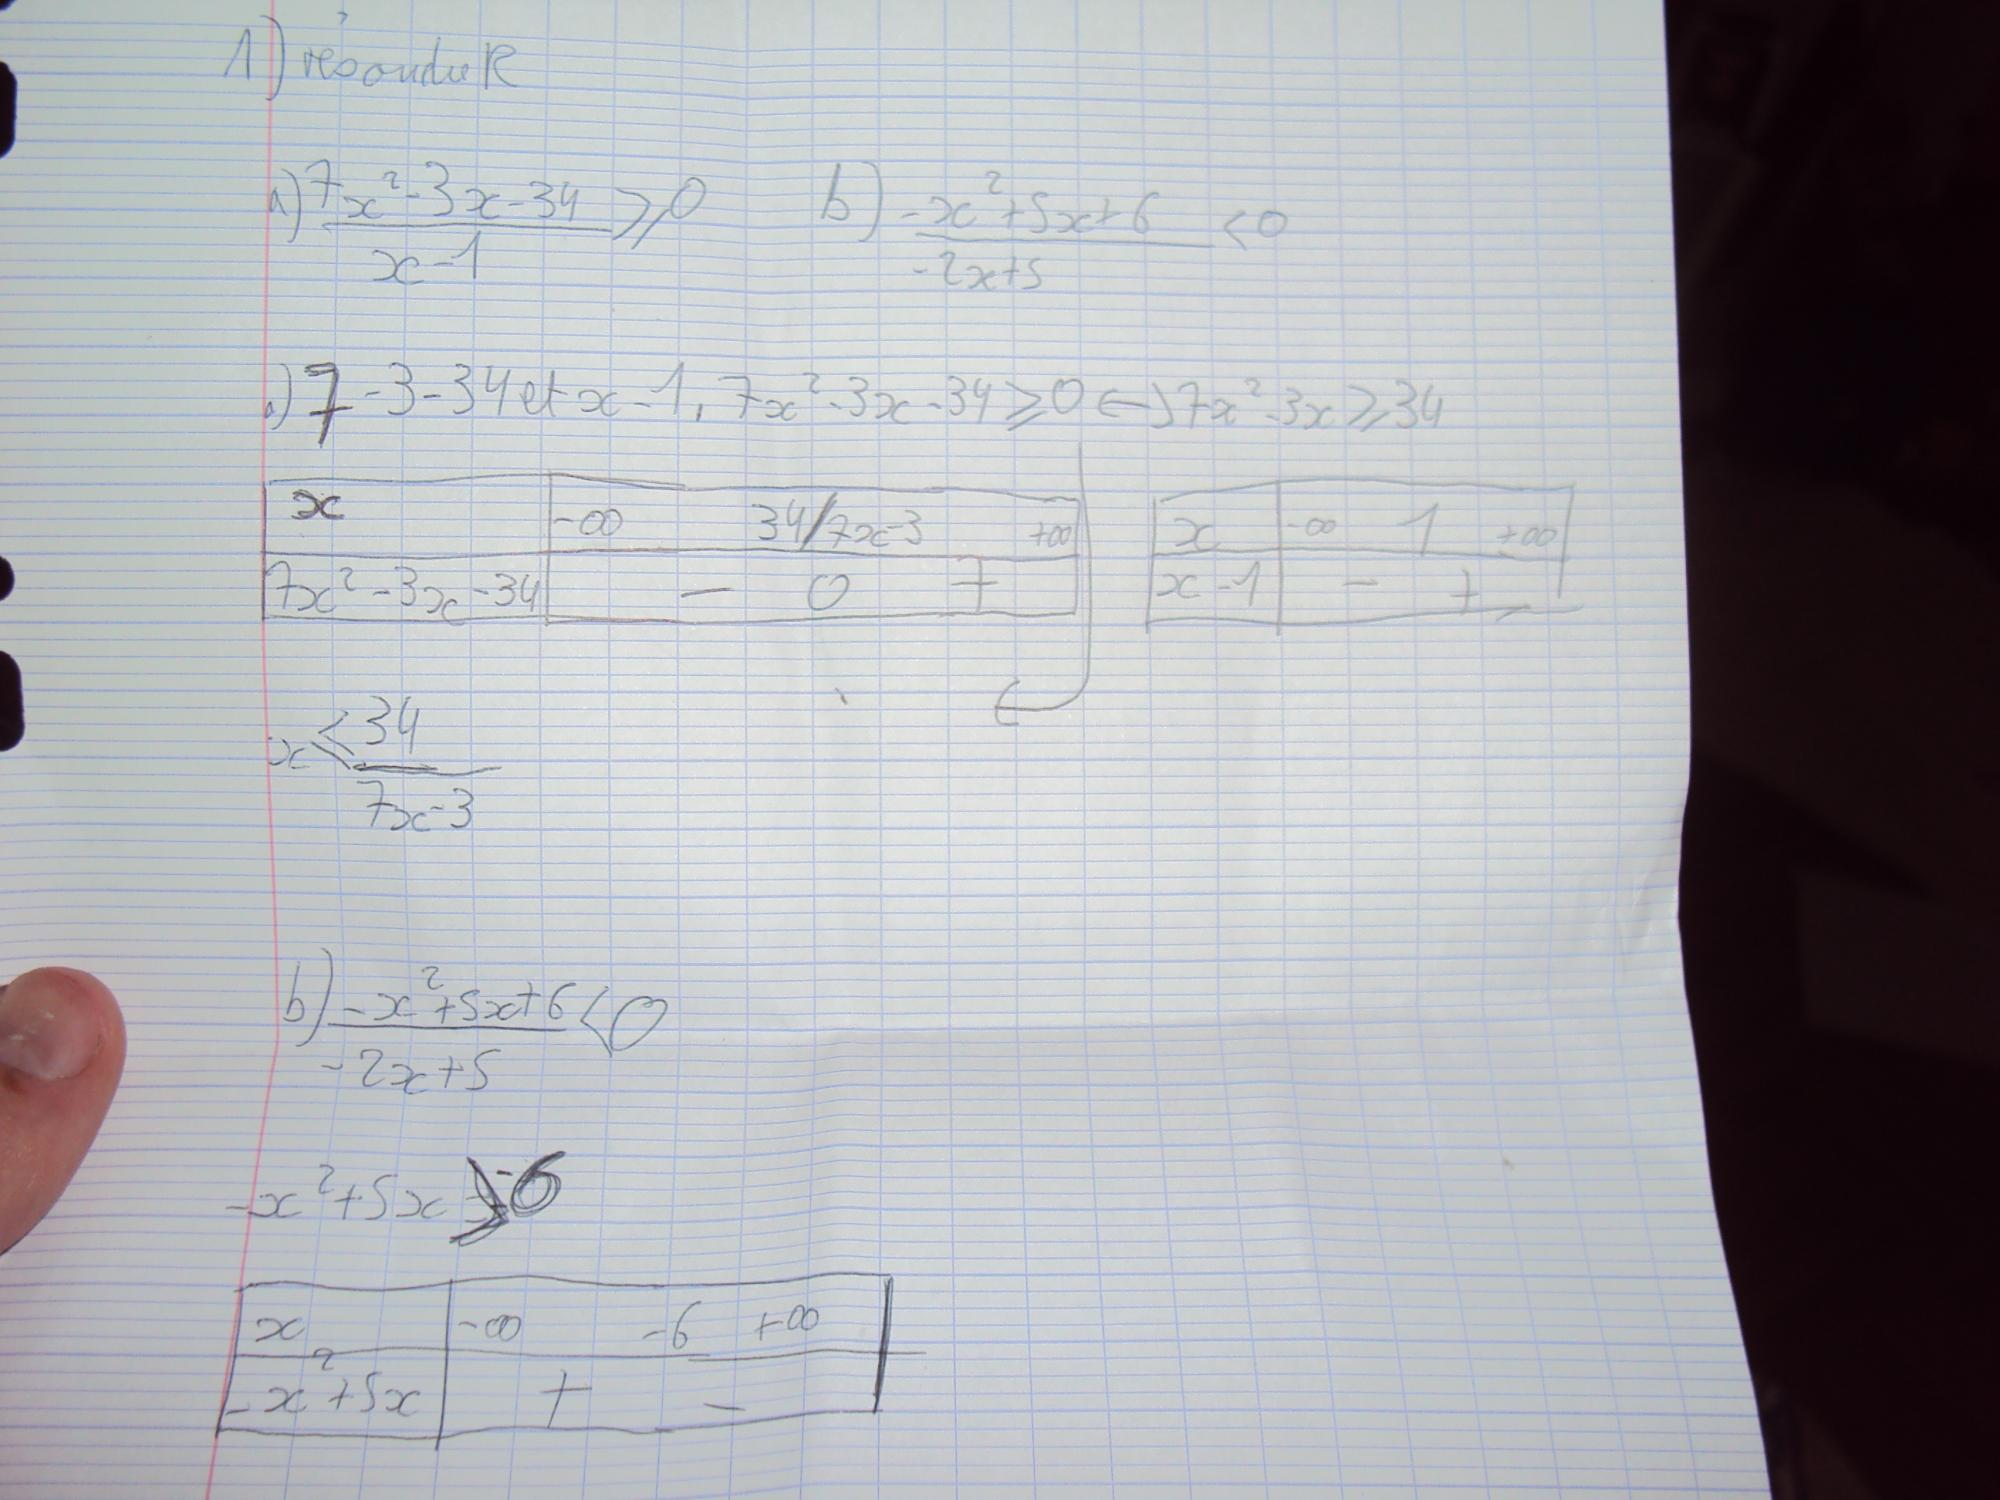 1) résoudre R
a) 7x²-3x-34 / x-1 ⩾0 b) -x²+5x+6 / -2x+5 <0
a) 7-3-34 et x-1, 7x²-3x-34⩾0 ↔ 7x²-3x⩾34
x -∞ 34/7x-3 +∞ x -∞ 1 +∞
7x²-3x-34 - 0 + x-1 - +
x ⩽ 34 / 7x-3
b) -x²+5x+6 / -2x+5 <0
-x²+5x ⩾-6
x -∞ -6 +∞
-x²+5x + -